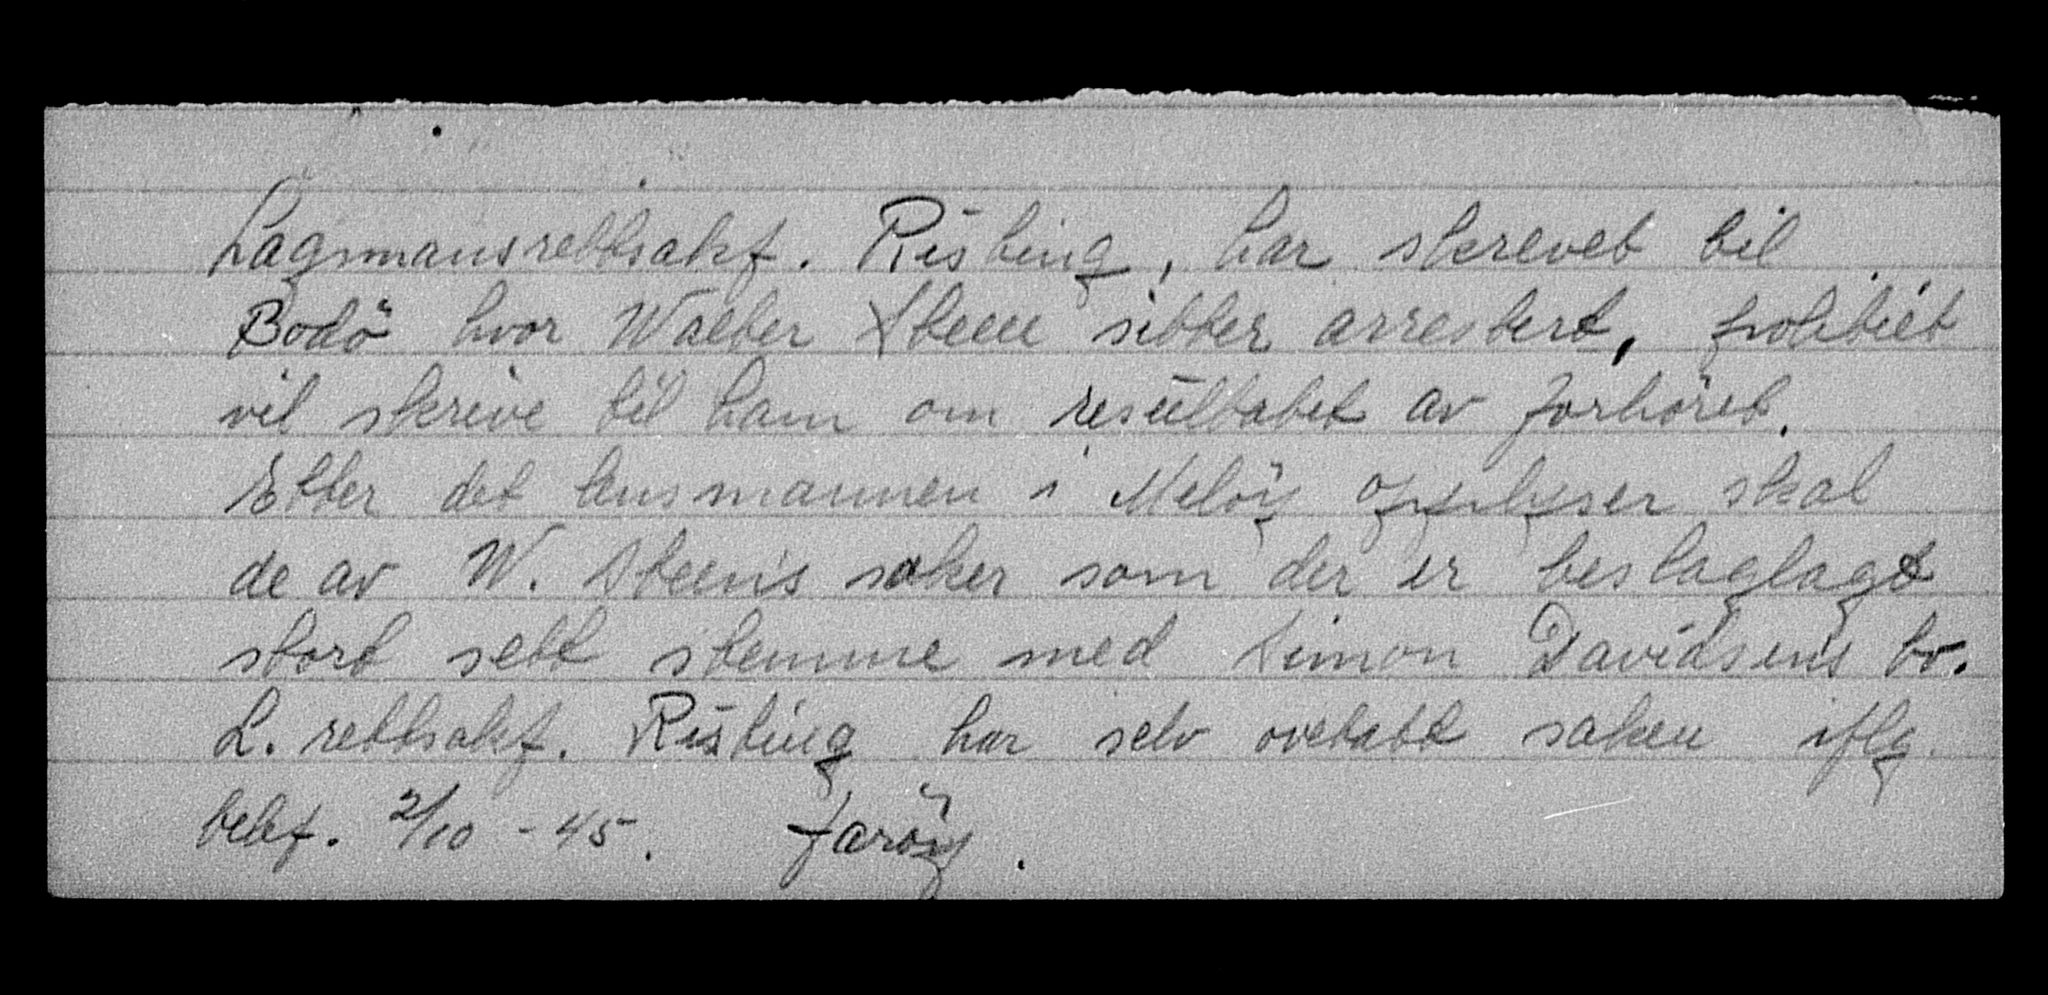 Lagmansrettsakf. Risting, har skrevet til
Bodö hvor Walter Steen sitter arrestert, politiet
vil skrive til ham om resultatet av forhöret.
Etter det lensmannen i Melöy opplyser skal
de av W. Steens saker som der er beslaglagt
stort sett stemme med Simon Davidsens bo.
L. rettsakf. Risting har selv overtatt saken iflg.
tekf. 2/10 - 45. Faröy.